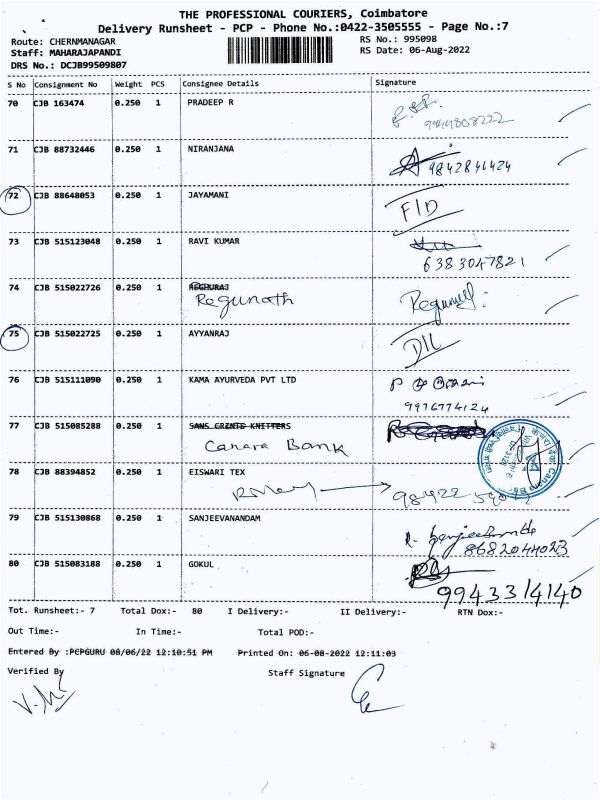 THE PROFESSIONAL COURIERS, Coimbatore
Delivery Runsheet - PCP - Phone No.:0422-3505555 - Page No.:7
Route: CHERNMANAGAR RS No.: 995098
Staff: MAHARAJAPANDI RS Date: 06-Aug-2022
DRS No.: DCJB99509807
S No Consignment No Weight PCS Consignee Details Signature
70 CJB 163474 0.250 1 PRADEEP R
9944808222
71 CJB 88732446 0.250 1 NIRANJANA
9842841424
72 CJB 88648053 0.250 1 JAYAMANI F/D
73 CJB 515123048 0.250 1 RAVI KUMAR
6383047821
74 CJB 515022726 0.250 1 REGHURAJ
Regunath
75 CJB 515022725 0.250 1 AYYANRAJ D/L
76 CJB 515111090 0.250 1 KAMA AYURVEDA PVT LTD
9976774124
77 CJB 515085288 0.250 1 SANS GRINTS KNITTERS
Canara Bank
78 CJB 88394852 0.250 1 EISWARI TEX
98422
79 CJB 515130868 0.250 1 SANJEEVANANDAM
8682044023
80 CJB 515083188 0.250 1 GOKUL
9943314140
Tot. Runsheet:- 7 Total Dox:- 80 I Delivery:- II Delivery:- RTN Dox:-
Out Time:- In Time:- Total POD:-
Entered By :PCPGURU 08/06/22 12:10:51 PM Printed On: 06-08-2022 12:11:03
Verified By Staff Signature